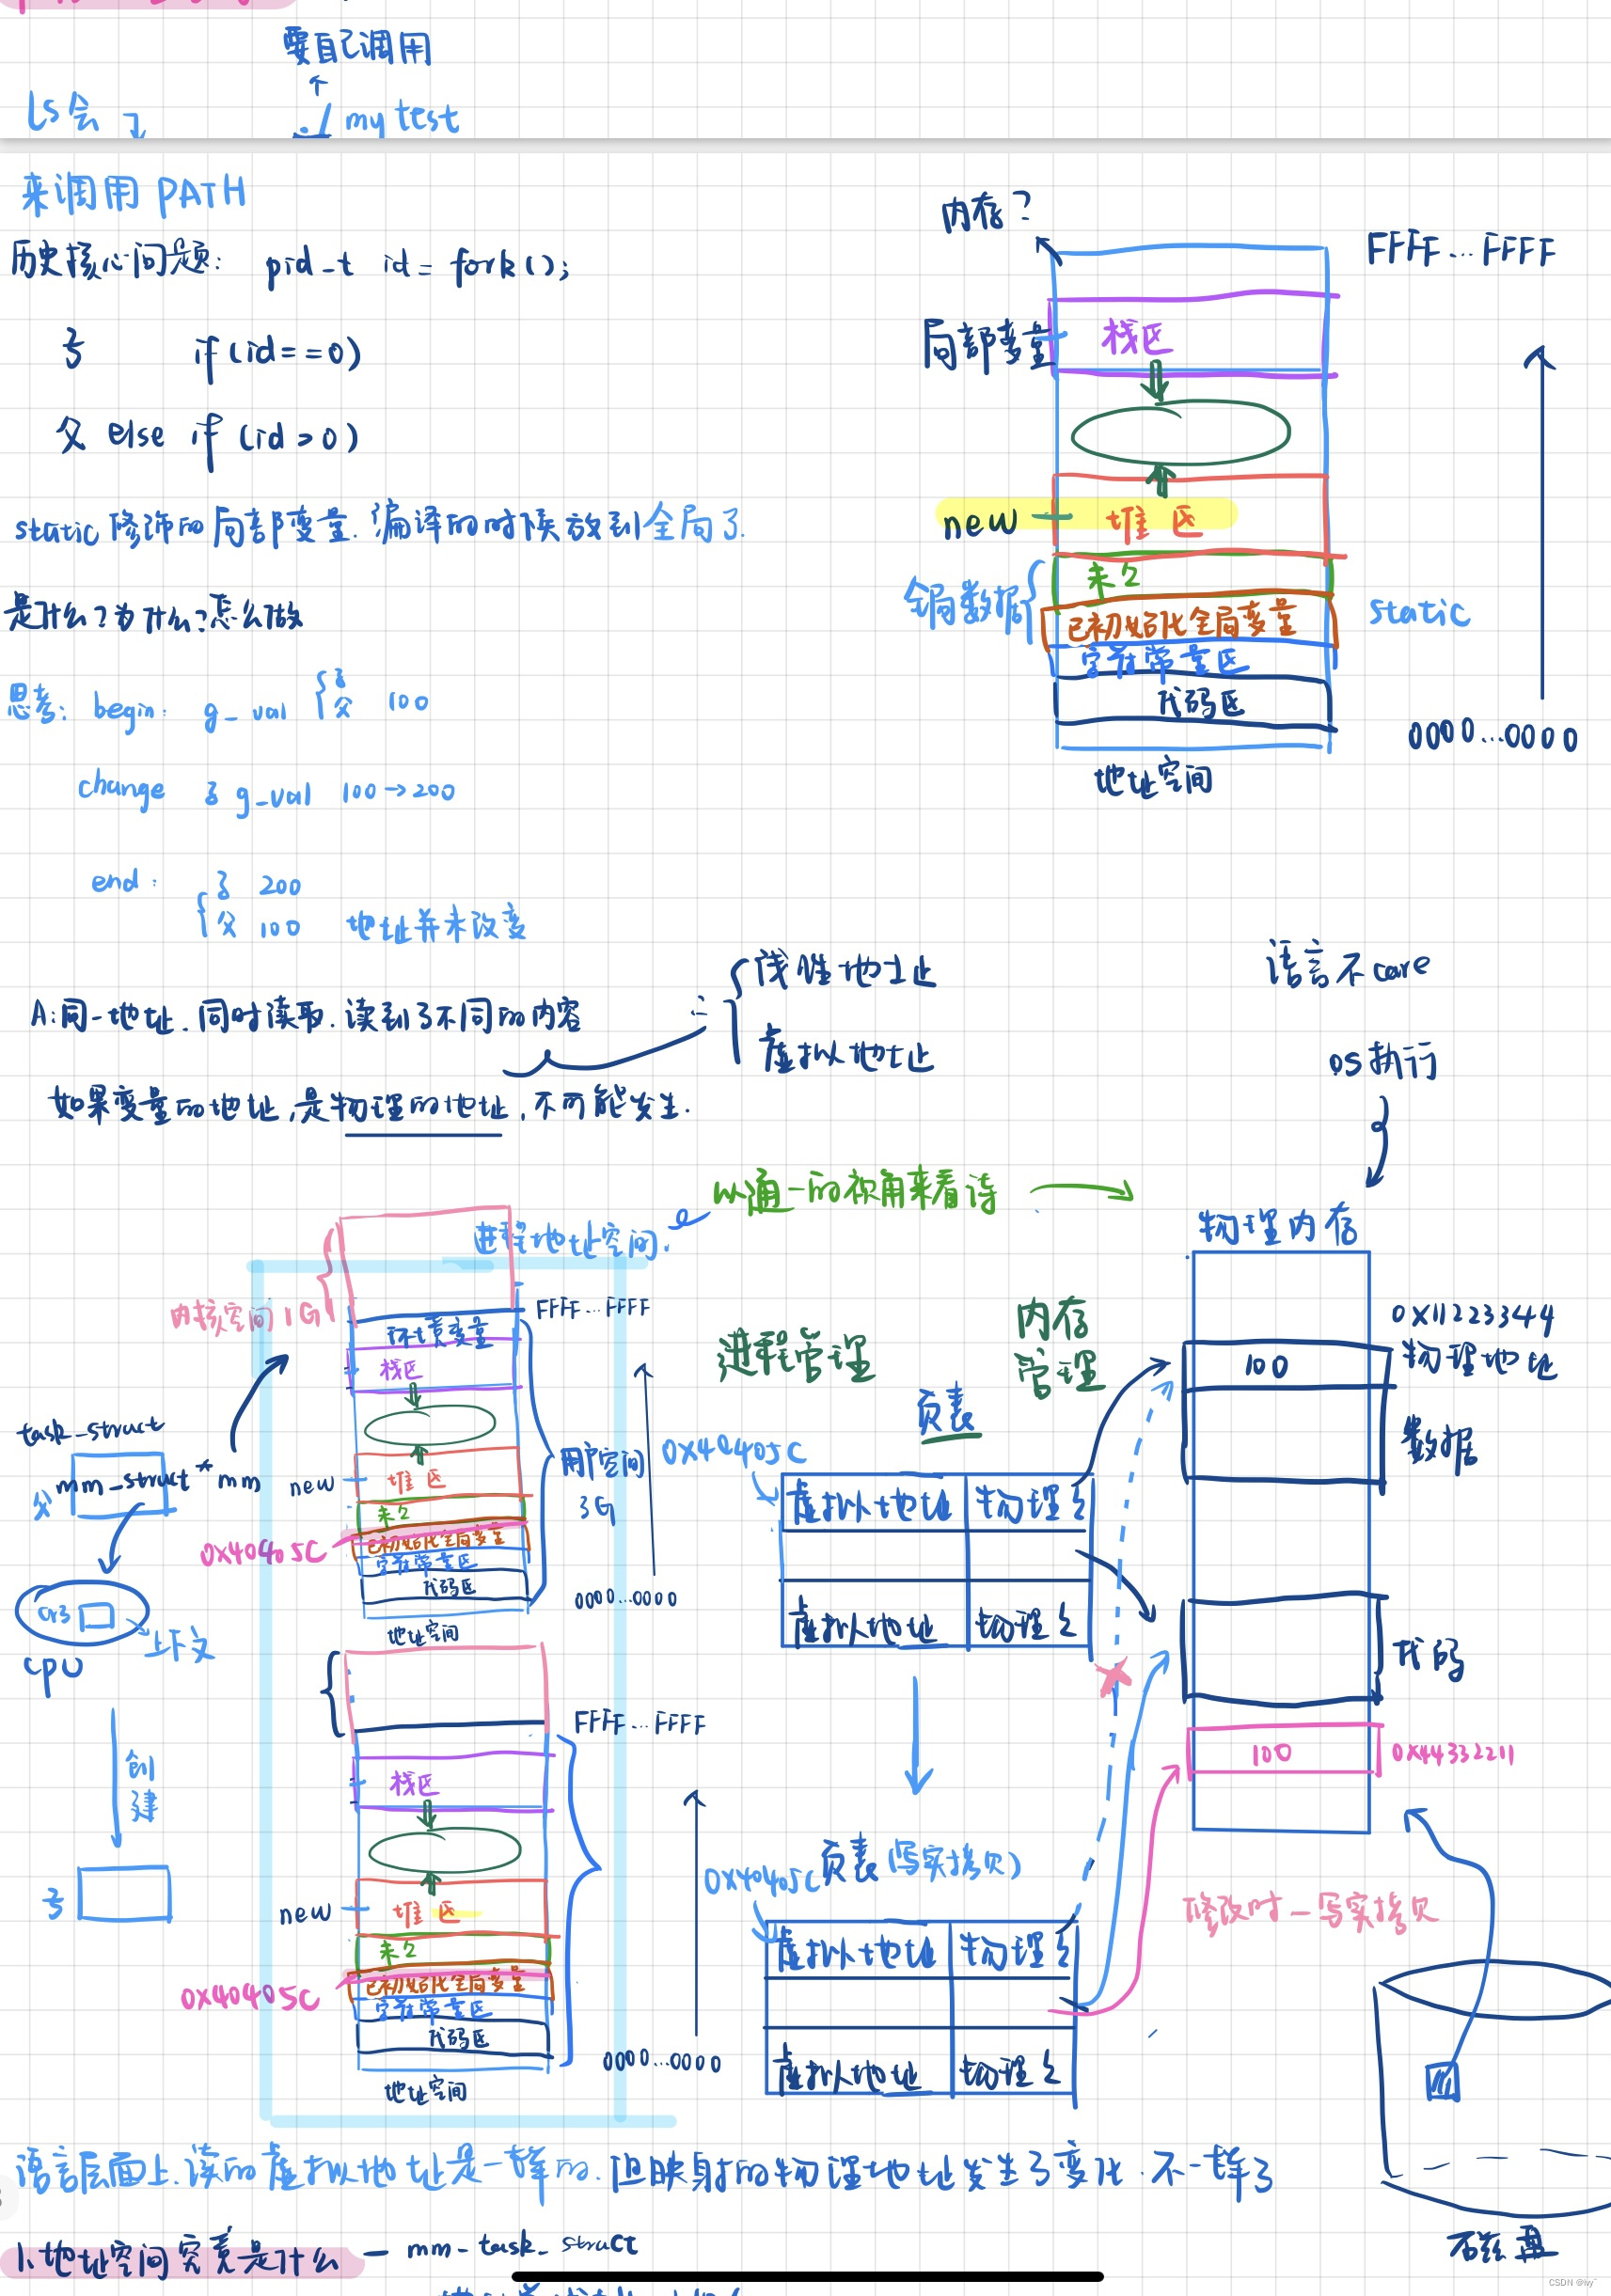 要自己调用
↑
ls会 ./mytest
来调用 PATH
历史核心问题: pid_t id = fork();
子 if(id==0)
父 else if (id>0)
static修饰的局部变量.编译的时候放到全局了.
是什么?为什么?怎么做
思考: begin: g_val {子 父 100
change 子 g_val 100→200
end: {子 200
父 100 地址并未改变
A:同一地址.同时读取.读到了不同的内容
如果变量的地址,是物理的地址,不可能发生.
∴ {线性地址
虚拟地址
内存?
FFFF...FFFF
局部变量 栈区
new 堆区
未2
全局数据{ 已初始化全局变量 static
字符常量区
代码区
0000...0000
地址空间
语言不care
OS执行
以通一的视角来看待 →
进程地址空间.
内核空间1G
FFFF...FFFF
环境变量
栈区
new 堆区
未2
0x40405C 已初始化全局变量
字符常量区
代码区
0000...0000
地址空间
用户空间
3G
task_struct
父 mm_struct* mm
cr3
上下文
cpu
创建
子
FFFF...FFFF
栈区
new 堆区
未2
0x40405C 已初始化全局变量
字符常量区
代码区
0000...0000
地址空间
进程管理
内存
管理
页表
0x40405C
虚拟地址 物理2
虚拟地址 物理2
0x40405C 页表(写实拷贝)
虚拟地址 物理2
虚拟地址 物理2
物理内存
100
0x11223344
物理地址
数据
代码
100 0x44332211
修改时—写实拷贝
磁盘
语言层面上.读的虚拟地址是一样的.但映射的物理地址发生了变化.不一样了
1.地址空间究竟是什么 — mm_task_struct
CSDN @ivy~